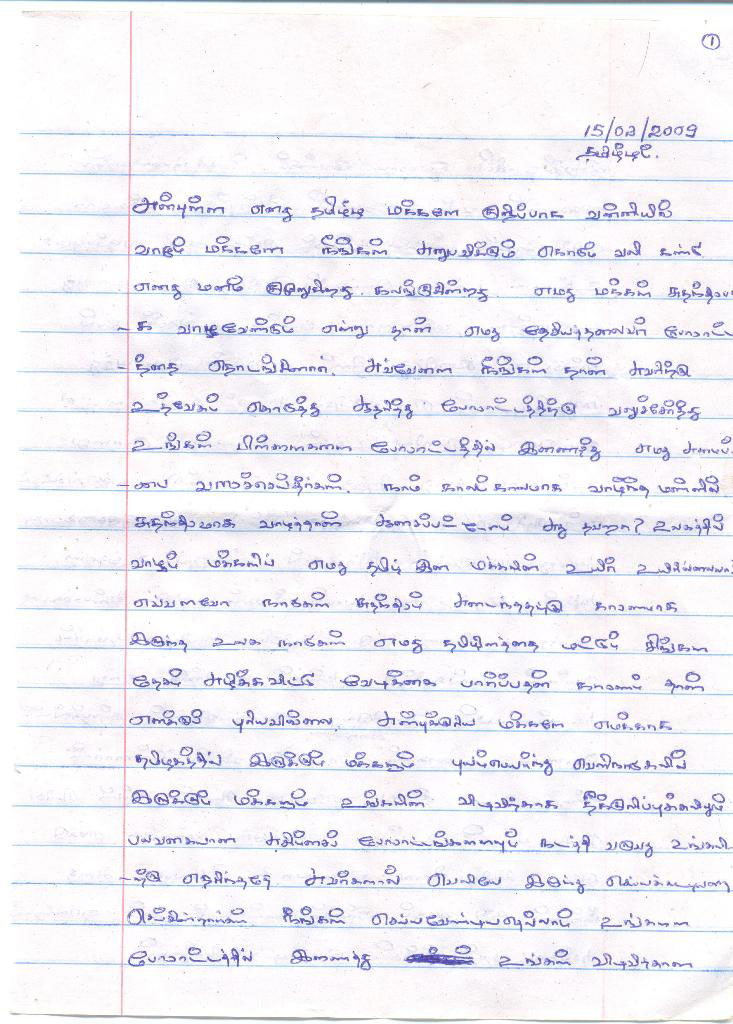 1
15/02/2009
தமிழீழம்.
அன்புள்ள எனது தமிழீழ மக்களே குறிப்பாக வன்னியில்
வாழும் மக்களே நீங்கள் அனுபவிக்கும் கொடும் வலி கண்டு
எனது மனம் குமுறுகிறது. கலங்குகின்றது. எமது மக்கள் சுதந்திரமா
-க வாழவேண்டும் என்று தான் எமது தேசியத்தலைவர் போராட்ட
-த்தை தொடங்கினார். அவ்வேளை நீங்கள் தான் அவரிற்கு
உத்வேகம் கொடுத்து சுதந்திர போராட்டத்திற்கு வலுச்சேர்த்து
உங்கள் பிள்ளைகளை போராட்டத்தில் இணைத்து எமது அமைப்
-பை வளரச்செய்தீர்கள். நாம் காலம் காலமாக வாழ்ந்த மண்ணில்
சுதந்திரமாக வாழத்தான் ஆசைப்பட்டோம் அது தவறா? உலகத்தில்
வாழும் மக்களில் எமது தமிழ் இன மக்களின் உயிர் உயிரில்லையா?
எவ்வளவோ நாடுகள் சுதந்திரம் அடைந்ததற்கு காரணமாக
இருந்த உலக நாடுகள் எமது தமிழினத்தை மட்டும் சிங்கள
தேசம் அழிக்க விட்டு வேடிக்கை பார்ப்பதன் காரணம் தான்
எனக்கு புரியவில்லை. அன்புக்குரிய மக்களே எமக்காக
தமிழகத்தில் இருக்கும் மக்களும் புலம்பெயர்ந்து வெளிநாடுகளில்
இருக்கும் மக்களும் உங்களின் விடிவிற்காக தீக்குளிப்புக்களையும்
பலவகையான அகிம்சைப் போராட்டங்களையும் நடத்தி வருவது உங்களி
-ற்கு தெரிந்ததே அவர்களால் வெளியே இருந்து செய்யக்கூடியதை
செய்கின்றார்கள். நீங்கள் செய்யவேண்டியதெல்லாம் உங்களை
போராட்டத்தில் இணைத்து உங்கள் விடிவிற்கான